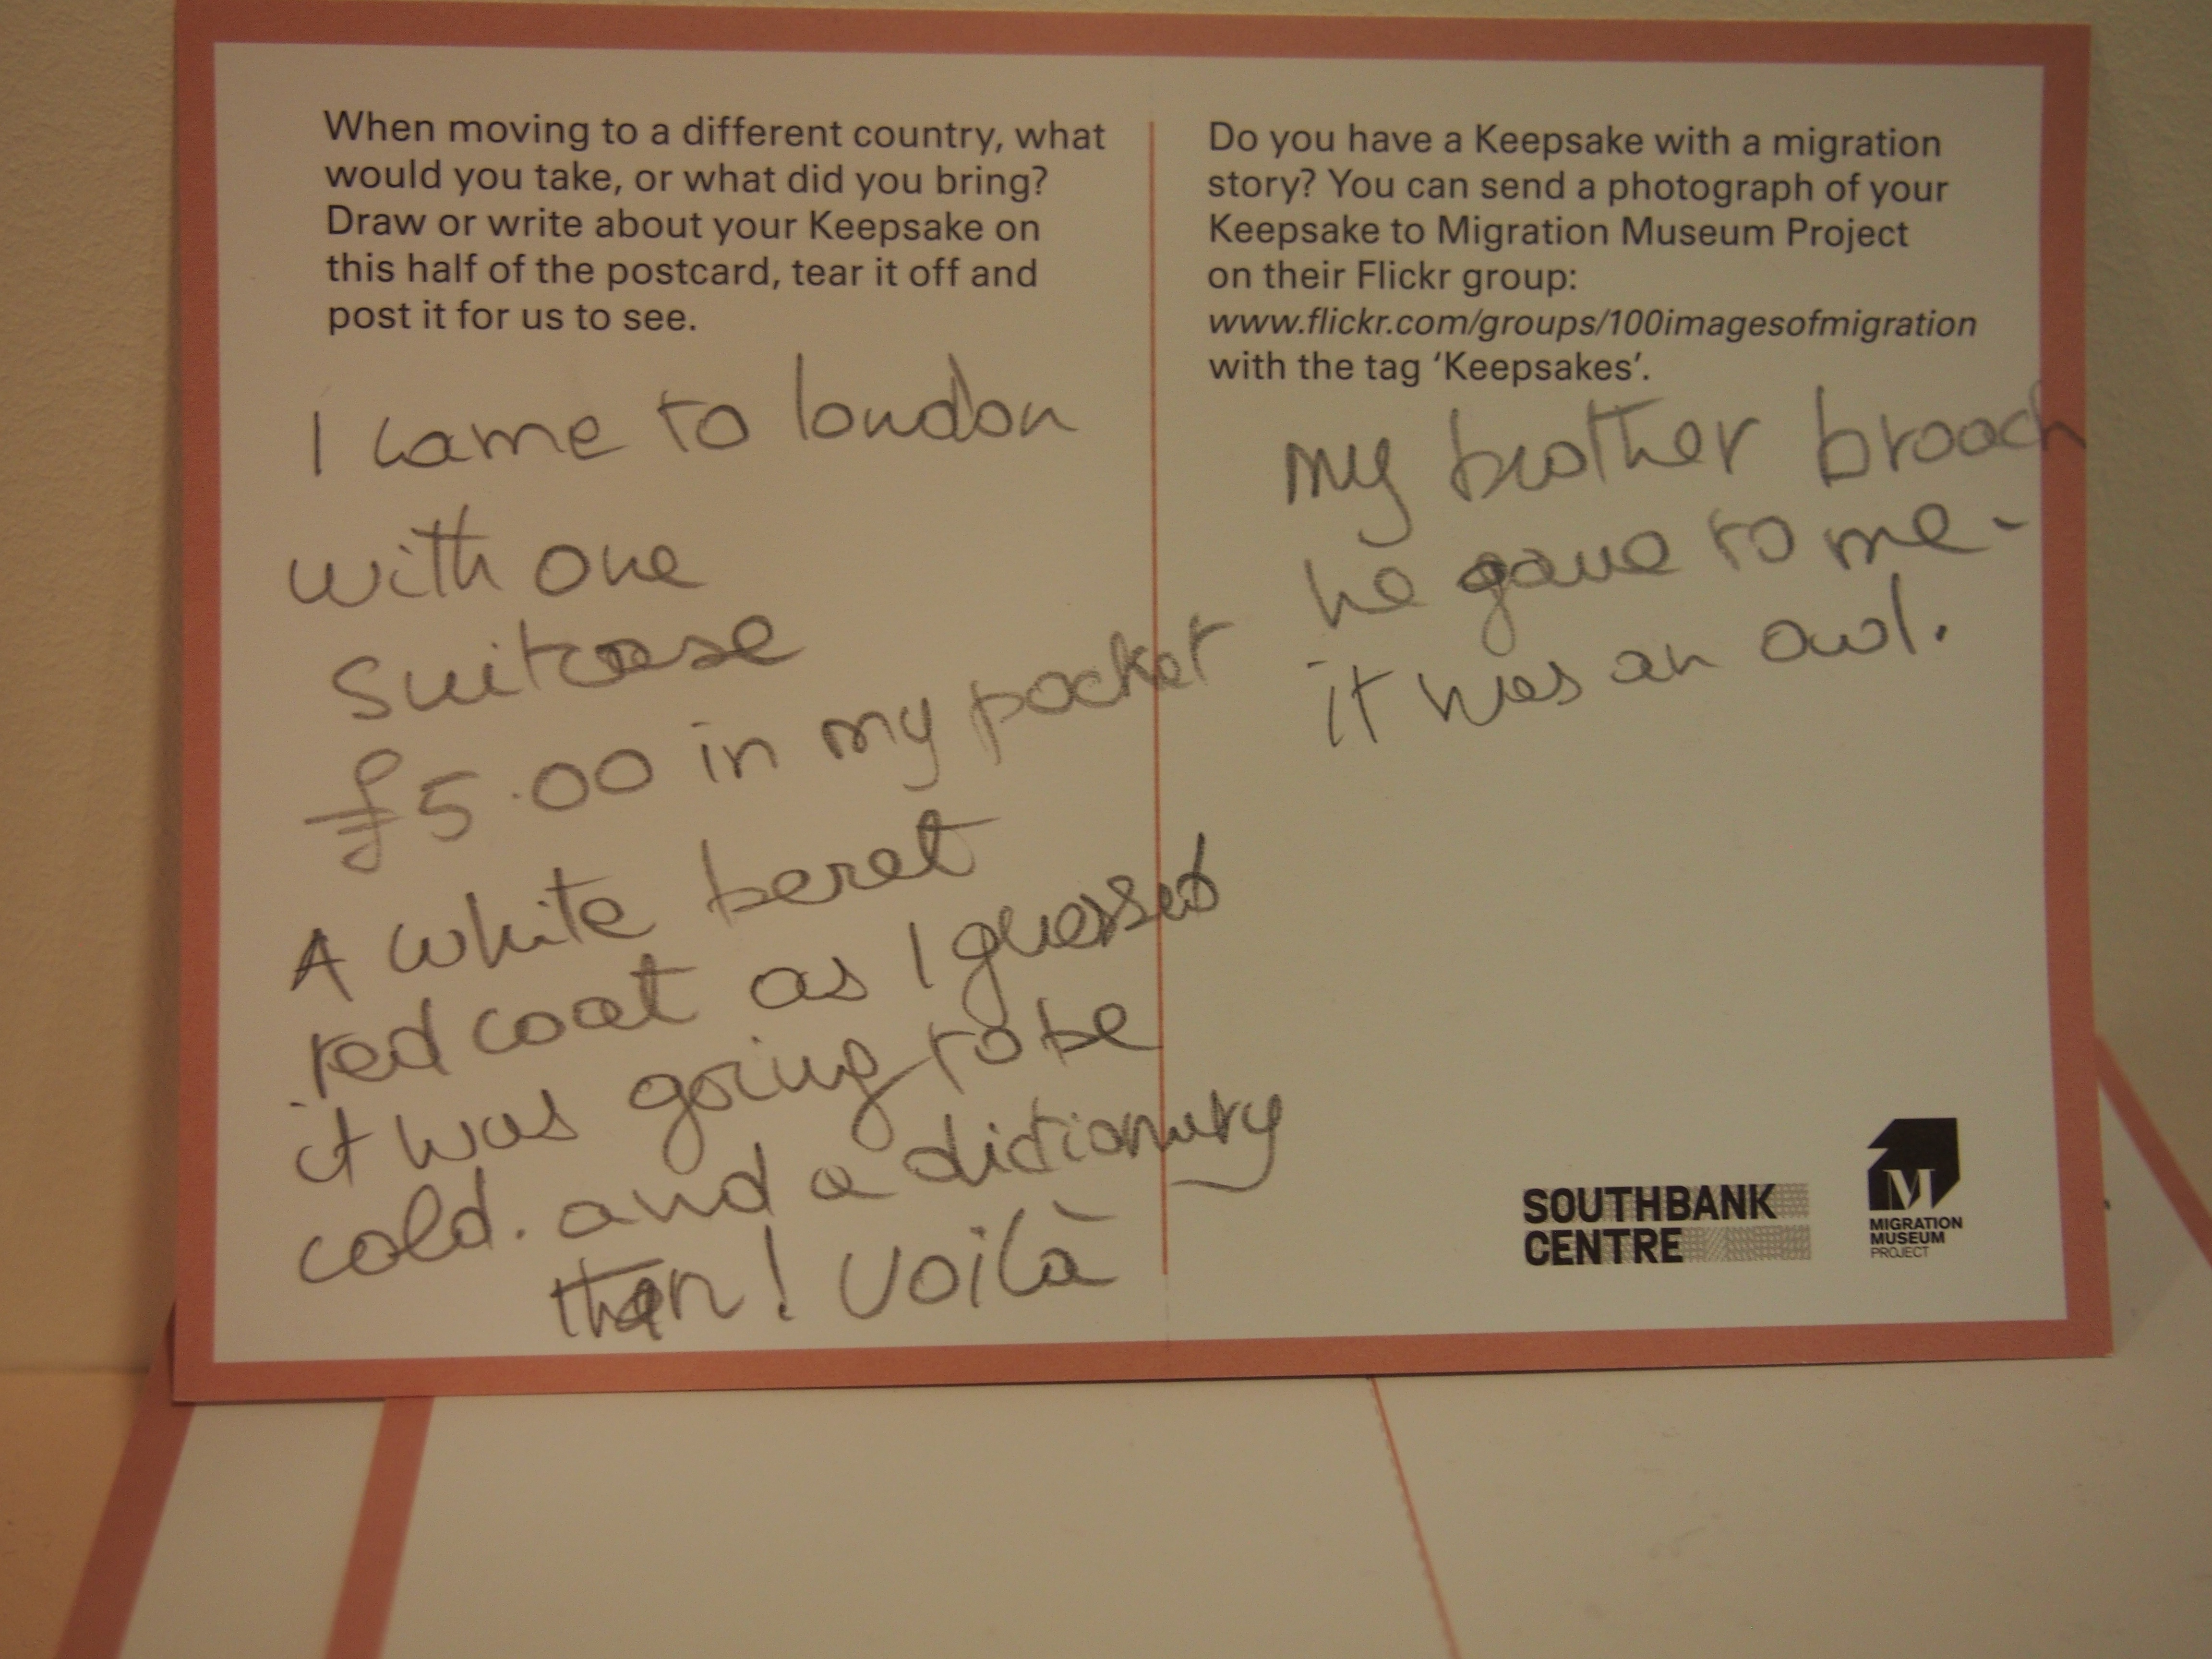 When moving to a different country, what
would you take, or what did you bring?
Draw or write about your Keepsake on
this half of the postcard, tear it off and
post it for us to see.
I came to london
with one
suitcase
£5.00 in my pocket
A white beret
red coat as I guessed
it was going to be
cold. and a dictionary
then! voilà
Do you have a Keepsake with a migration
story? You can send a photograph of your
Keepsake to Migration Museum Project
on their Flickr group:
www.flickr.com/groups/100imagesofmigration
with the tag ‘Keepsakes’.
my brother brooch
he gave to me -
it was an owl.
SOUTHBANK
CENTRE
M
MIGRATION
MUSEUM
PROJECT